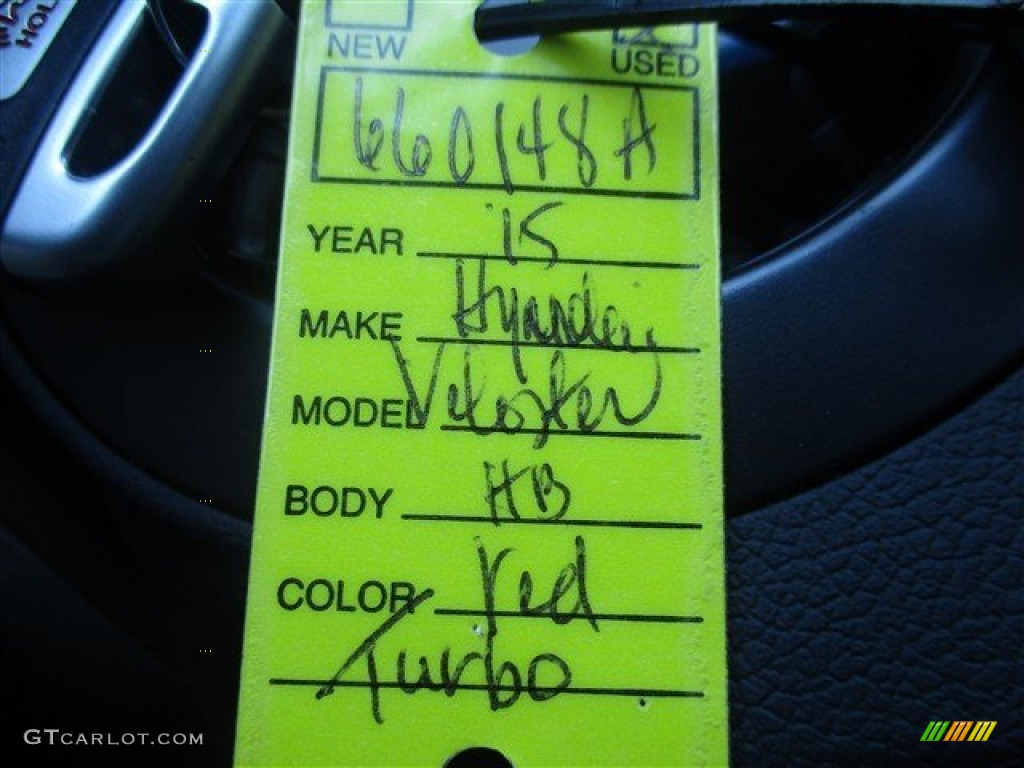 HOL
NEW
USED
660148A
YEAR '15
MAKE Hyundai
MODEL Veloster
BODY HB
COLOR red
Turbo
GTCARLOT.COM